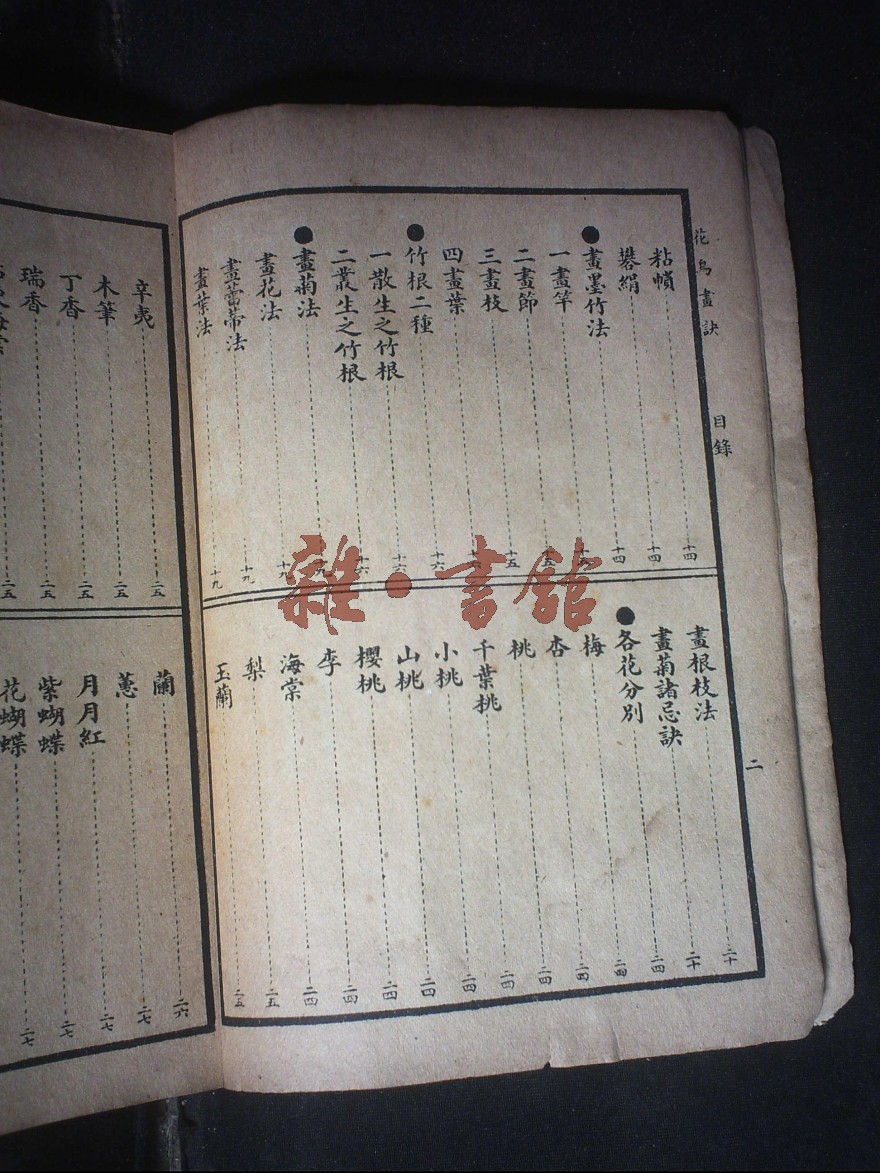 花鳥畫訣
目錄
二
粘幀 十四
礬絹 十四
●畫墨竹法
一畫竿 十五
二畫節 十五
三畫枝
四畫葉 十六
竹根二種 十六
一散生之竹根 十六
二叢生之竹根 十九
●畫菊法 十九
畫花法 十九
畫蕾蒂法 十九
畫葉法
畫根枝法 二十
畫菊諸忌訣 二十
●各花分別 二四
梅 二四
杏 二四
桃 二四
千葉桃 二四
小桃 二四
山桃 二四
櫻桃 二四
李 二四
海棠 二四
梨 二五
玉蘭 二五
辛夷 二五
木筆 二五
丁香 二五
瑞香 二五
蘭 二六
蕙 二七
月月紅 二七
紫蝴蝶 二七
花蝴蝶 二七
雜·書館